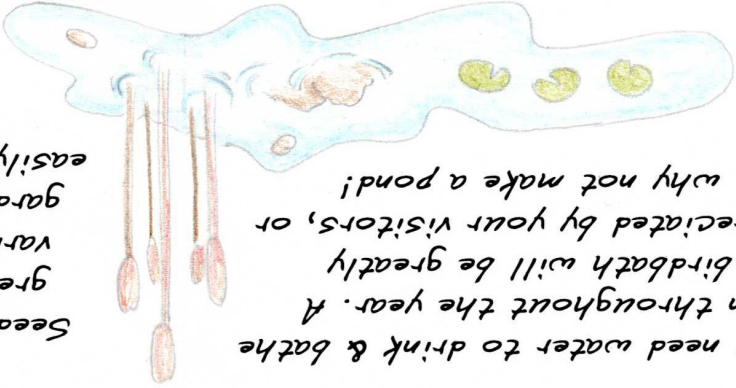 need water to drink & bathe
throughout the year. A
birdbath will be greatly
eciated by your visitors, or
why not make a pond!
Seed
gre
var
gard
easily